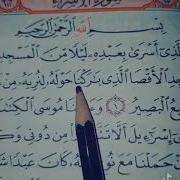 سُورَةُ الإِسْرَاءِ
بِسْمِ اللَّهِ الرَّحْمَٰنِ الرَّحِيمِ
الَّذِي أَسْرَىٰ بِعَبْدِهِ لَيْلًا مِّنَ الْمَسْجِدِ
الْأَقْصَا الَّذِي بَٰرَكْنَا حَوْلَهُ لِنُرِيَهُ مِنْ
الْبَصِيرُ ١ وَءَاتَيْنَا مُوسَى الْكِتَٰبَ
إِسْرَٰٓءِيلَ أَلَّا تَتَّخِذُوا مِن دُونِي
حَمَلْنَا مَعَ نُوحٍ إِنَّهُ كَانَ عَبْدًا